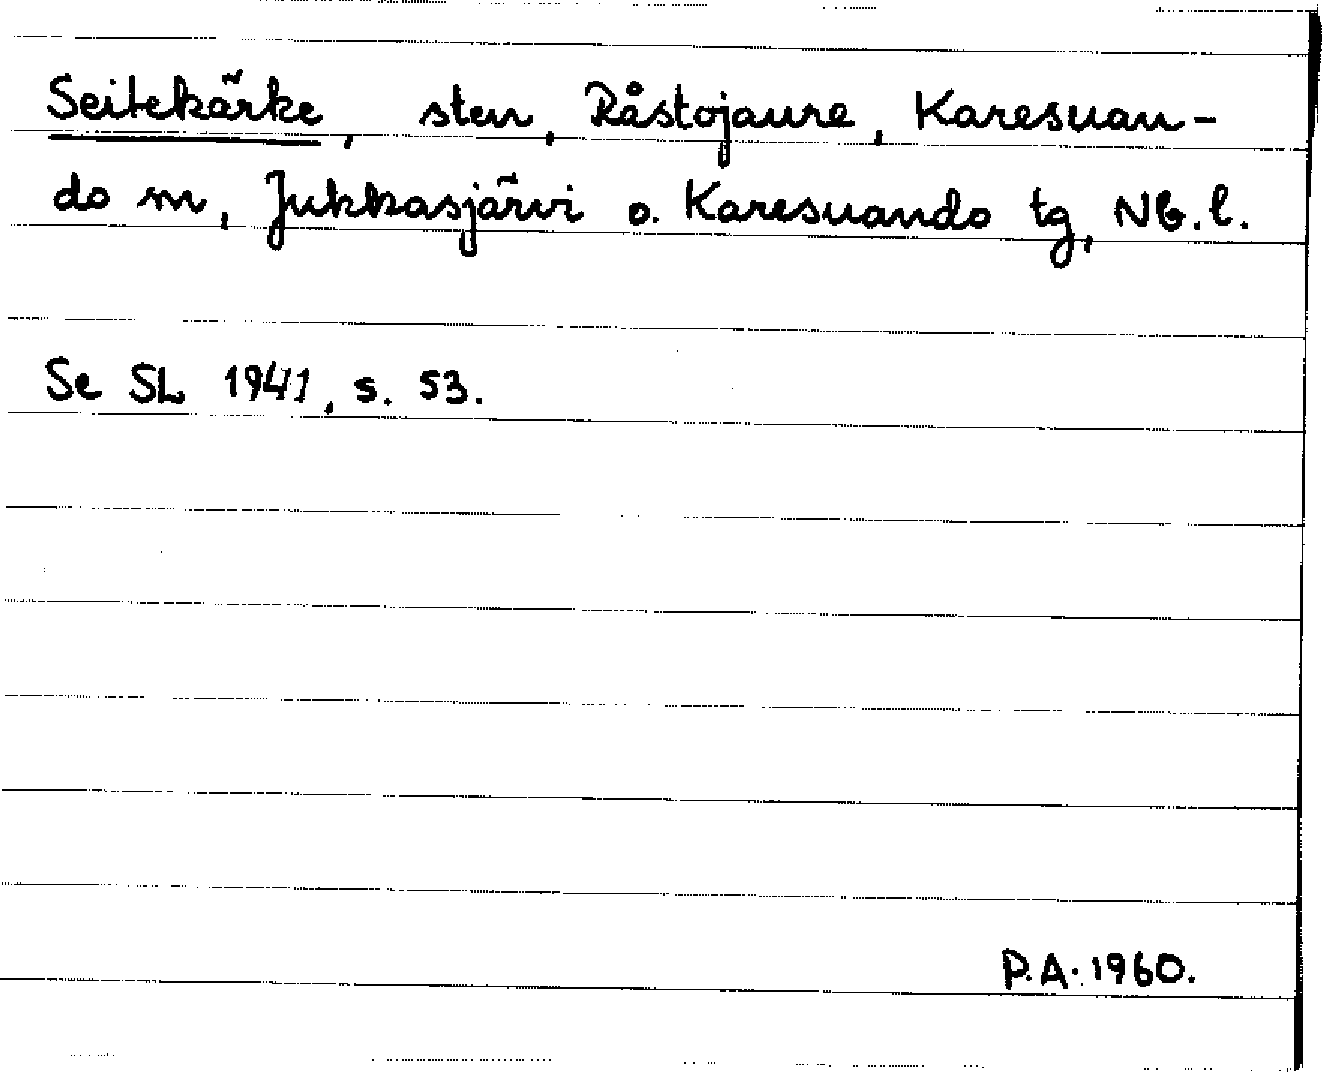 Seitekärke, sten, Råstojaure, Karesuan-
do m, Jukkasjärvi o. Karesuando tg, Nb. l.
Se SL 1941, s. 53.
P.A. 1960.